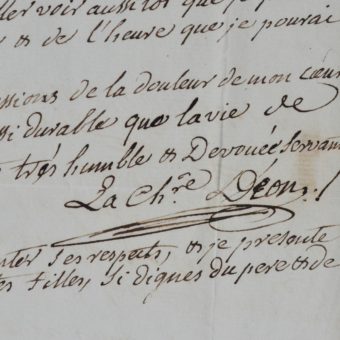 ller voir aussitot que je
& de l'heure que je pourai
ssions de la douleur de mon cœur
si durable que la vie de
très humble & Devouée Servan
La Ch.re Déon
nter ses respects, & je présente
tes filles, si dignes du pere & de